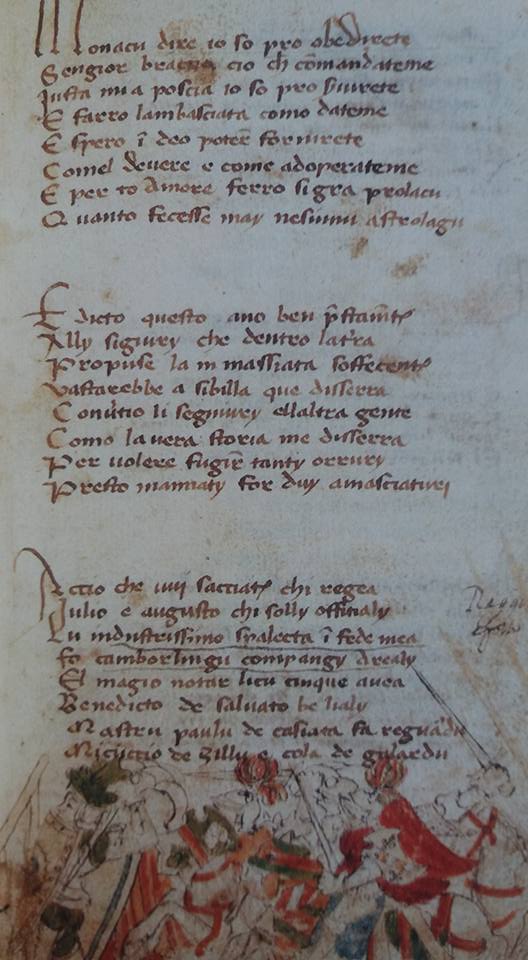 Monacu dire io so pro obedirete
Sengior braccio cio ch comandateme
Justa mia poscia io so pro sivirete
E farro lambasciata como dateme
E spero ĩ deo poter fornirete
Comel devere e come adoperateme
E per to amore ferro si gra prolacu
Quanto fecesse may nesiunu astrolagu
E dicto questo ano ben
Ally signury che dentro
Propuse la massiata
Vastarebbe a sibilla que disserra
li segnurey ellaltra gente
Como la vera storia me disserra
Per volere fugir tanty orrury
Presto mannaty for duy amasciaturi
Accio che vui sacciate chi regea
Julio e augusto chi solly offitialy
Lu industrissimo spalecta ĩ fede mea
fo camborlingu compangy
El magio notar licu cinque avea
Benedicto de salvato be lialy
Mastru paulu de casiata fa
Micuccio de Zillu e cola de gilardu